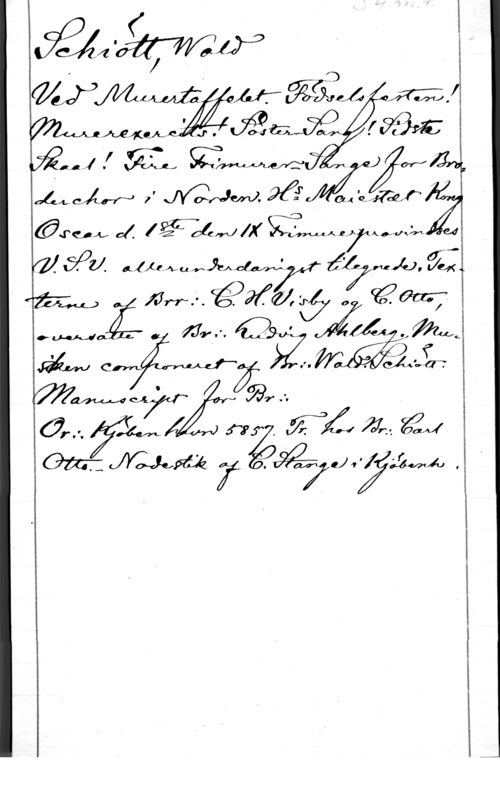 Schiött, Wald
Ved Murertaffelet. Födselsfesten!
Murerexercits! Söster-Sang! Sidste
Skaal! Fire Frimurer-Sange for Bro-
derchor i Norden. Hs Majestæt Kong
Oscar d. 1ste den IX Frimurerprovindses
V. S. V. allerunderdanigst tilegnede. Tex-
terne af Brr∴ C. H. Visby og C. Otto,
oversatte af Br∴ Ludvig Ahlberg. Mu-
siken componeret af Br∴ Wald. Schiött.
Manuscript for Br∴
Or∴ Kjöbenhavn 5857. Fr. hos Br∴ Carl
Otto. - Nodestik af C. Stange i Kjöbenh.